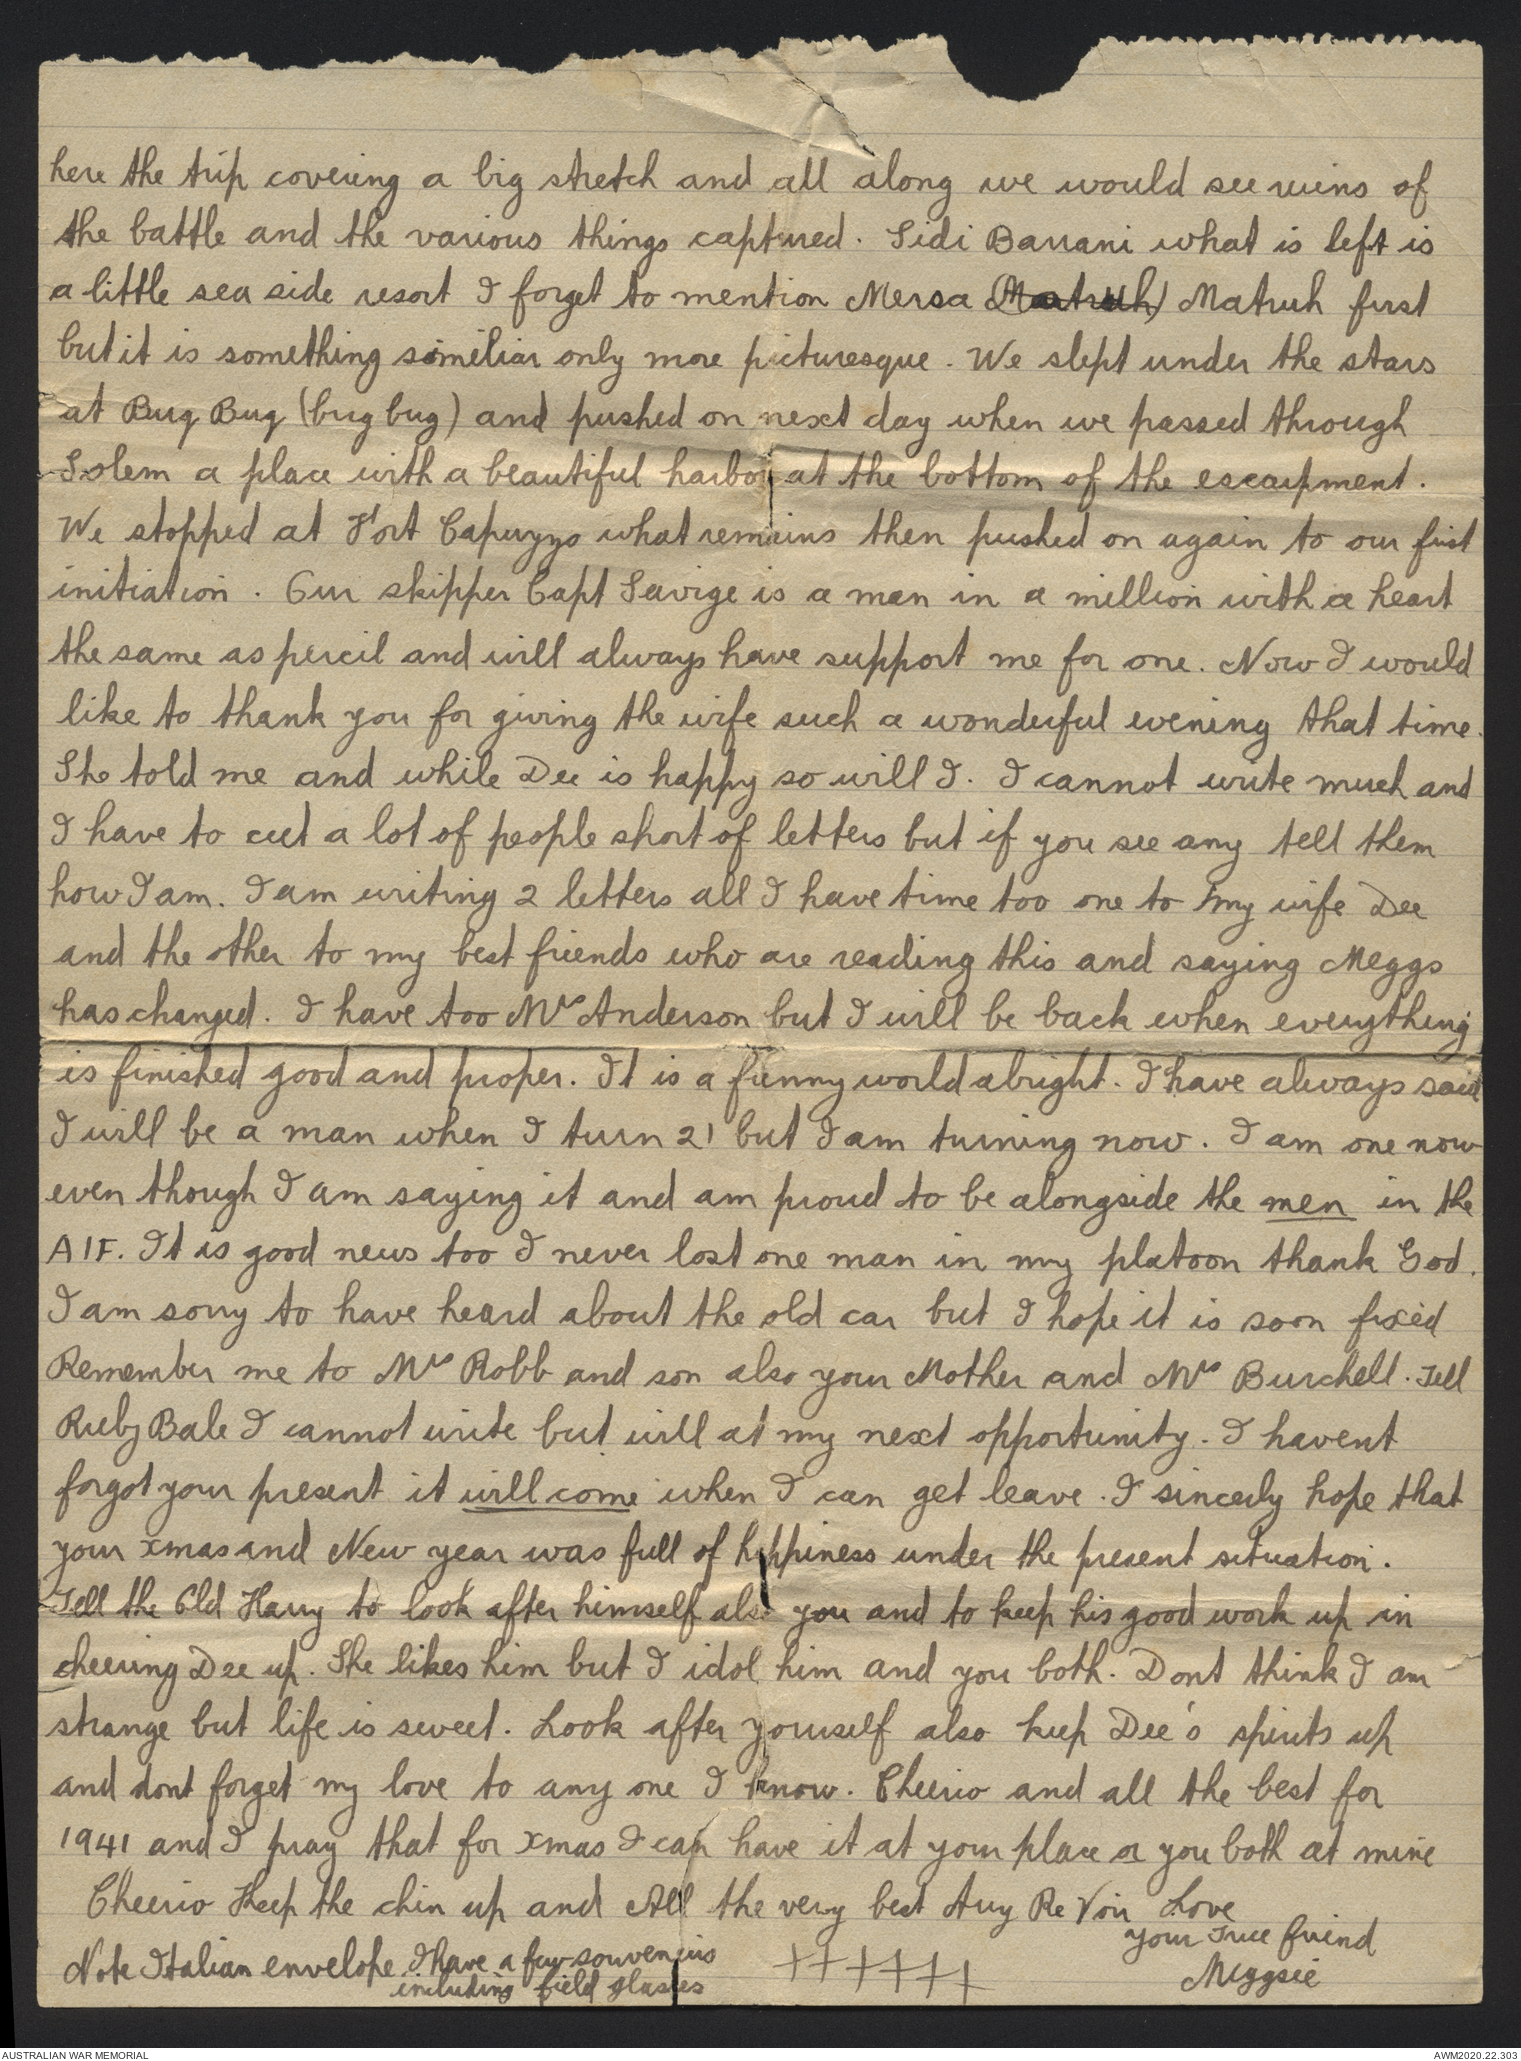 here the trip covering a big stretch and all along we would see ruins of
the battle and the various things captured. Sidi Barrani what is left is
a little sea side resort I forget to mention Mersa (Matruh) Matruh first
but it is something similiar only more picturesque. We slept under the stars
at Buq Buq (bug bug) and pushed on next day when we passed through
Solem a place with a beautiful harbor at the bottom of the escarpment.
We stopped at Fort Capuzzo what remains then pushed on again to our first
initiation. Our skipper Capt Savige is a man in a million with a heart
the same as percil and will always have support me for one. Now I would
like to thank you for giving the wife such a wonderful evening that time.
She told me and while Dee is happy so will I. I cannot write much and
I have to cut a lot of people short of letters but if you see any tell them
how I am. I am writing 2 letters all I have time too one to my wife Dee
and the other to my best friends who are reading this and saying Meggs
has changed. I have too Mrs Anderson but I will be back when everything
is finished good and proper. It is a funny world alright. I have always said
I will be a man when I turn 21 but I am turning now. I am one now
even though I am saying it and am proud to be alongside the men in the
AIF. It is good news too I never lost one man in my platoon thank God.
I am sorry to have heard about the old car but I hope it is soon fixed
Remember me to Mrs Robb and son also your Mother and Mrs Burchell. Tell
Ruby Bale I cannot write but will at my next opportunity. I havent
forgot your present it will come when I can get leave. I sincerly hope that
your xmas and New year was full of happiness under the present situation.
Tell the Old Harry to look after himself also you and to keep his good work up in
cheering Dee up. She likes him but I idol him and you both. Dont think I am
strange but life is sweet. Look after yourself also keep Dee's spirits up
and dont forget my love to any one I know. Cheerio and all the best for
1941 and I pray that for Xmas I can have it at your place or you both at mine
Cheerio Keep the chin up and All the very best Auy Re Voir Love
your True friend
Meggsie
Note Italian envelope I have a few souvenirs
including field glasses
++++++
AUSTRALIAN WAR MEMORIAL
AWM2020.22.303